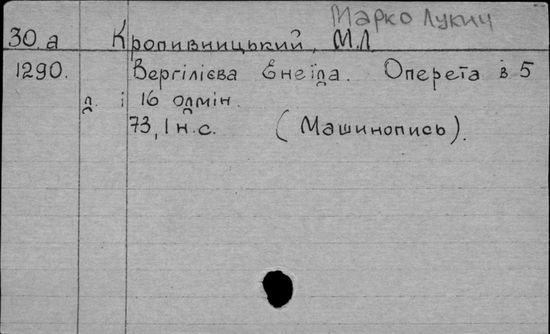 Марко Лукич
30.а Кропивницький, М.Л.
1290. Вергілієва Енеїда. Оперета в 5
д. і 16 одмін.
73,1 н.с. (Машинопись).